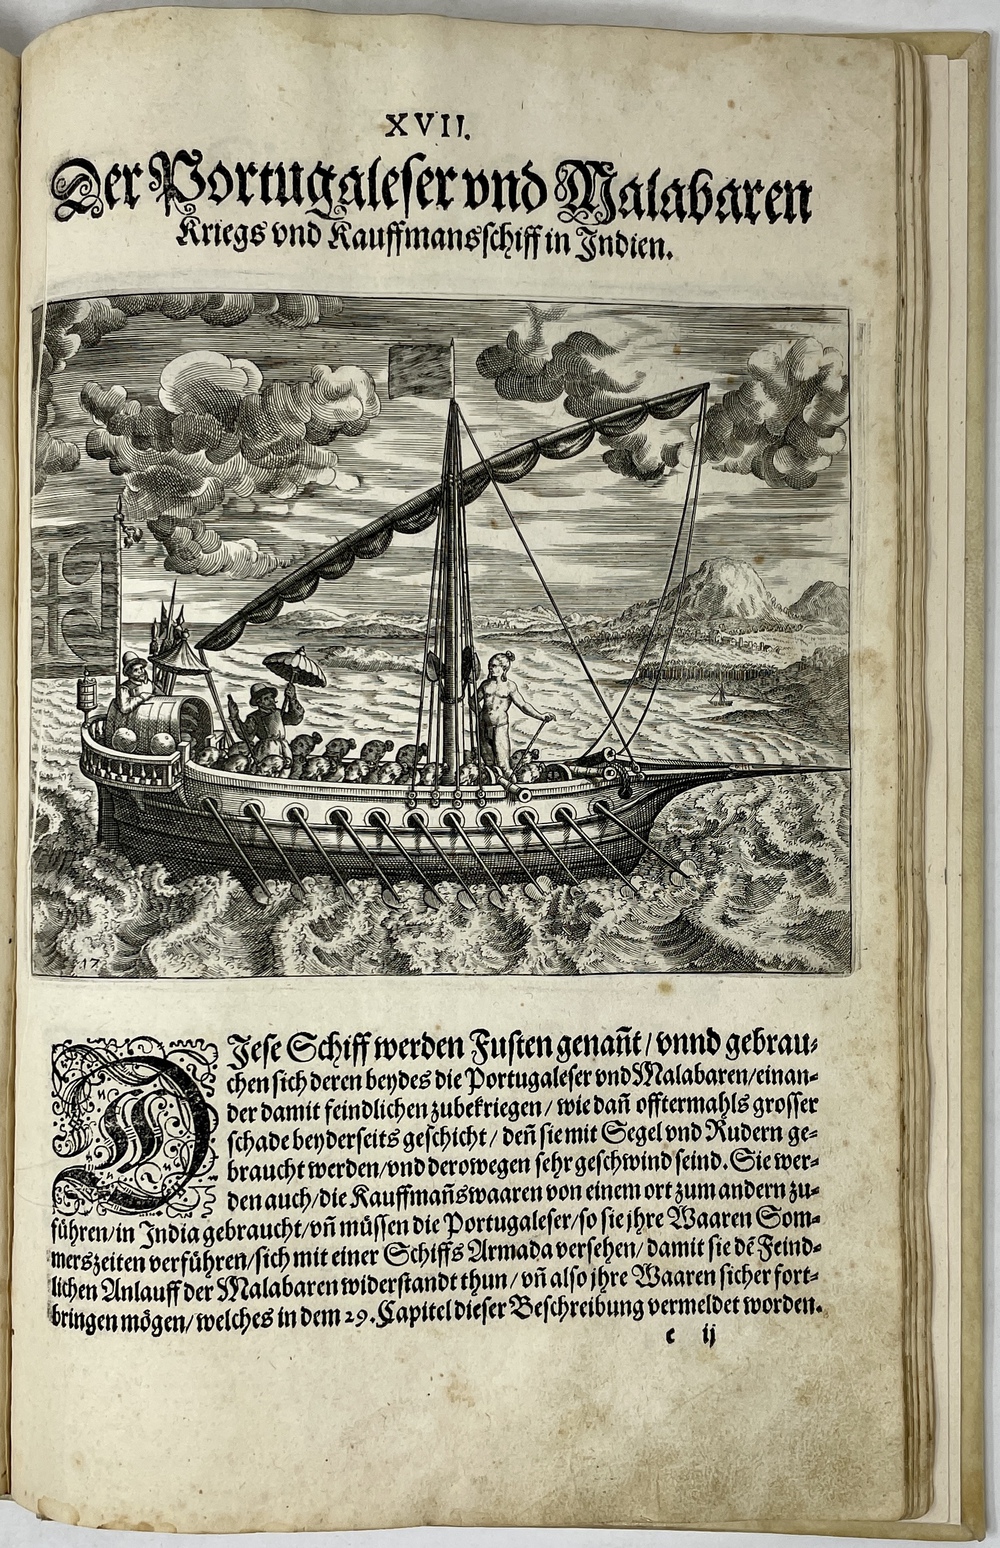 XVII.
Der Portugaleser vnd Malabaren
Kriegs vnd Kauffmansschiff in Indien.
17
DIese Schiff werden Fusten genañt / vnnd gebrau-
chen sich deren beydes die Portugaleser vnd Malabaren/einan-
der damit feindlichen zubekriegen / wie dañ offtermahls grosser
schade beyderseits geschicht / deñ sie mit Segel vnd Rudern ge-
braucht werden/vnd derowegen sehr geschwind seind. Sie wer-
den auch/die Kauffmañswaaren von einem ort zum andern zu-
führen/in India gebraucht/vñ müssen die Portugaleser/so sie jhre Waaren Som-
merszeiten verführen/sich mit einer Schiffs Armada versehen/ damit sie dẽ Feind-
lichen Anlauff der Malabaren widerstandt thun / vñ also jhre Waaren sicher fort-
bringen mögen/ welches in dem 29. Capitel dieser Beschreibung vermeldet worden.
c ij